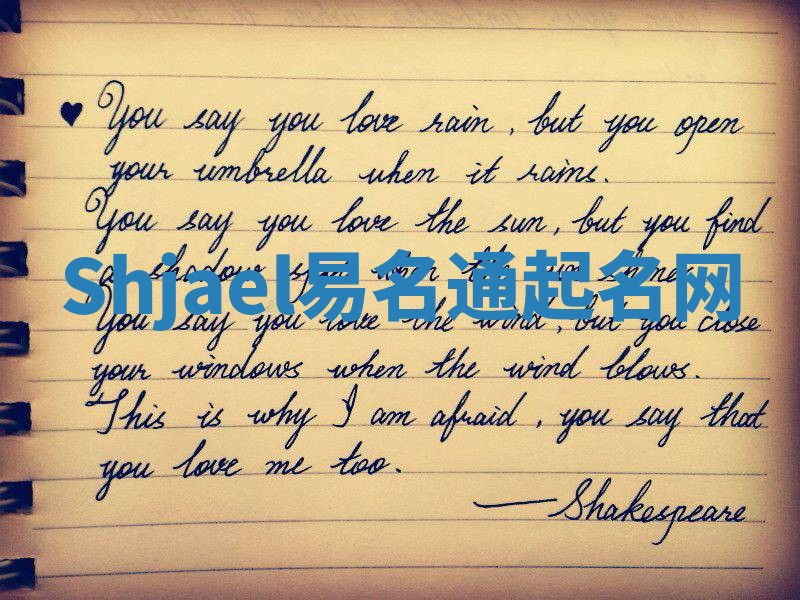 ♥ You say you love rain, but you open
your umbrella when it rains.
You say you love the sun, but you find
a shadow spot when the sun shines.
Shjael易名通起名网
You say you love the wind, but you close
your windows when the wind blows.
This is why I am afraid, you say that
you love me too.
— Shakespeare